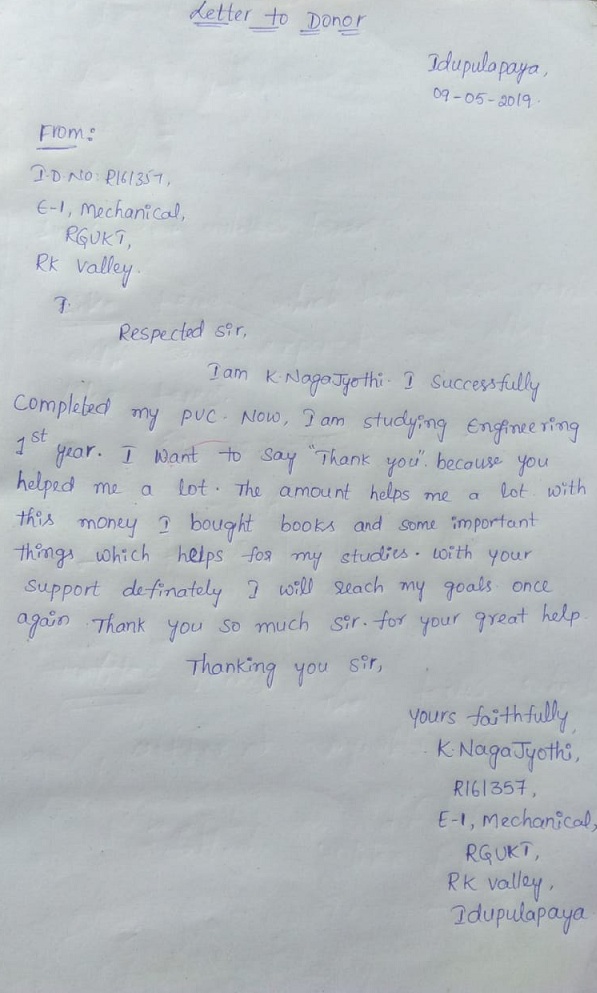 Letter to Donor
Idupulapaya,
09-05-2019.
From:
I.D NO: R161357,
E-1, Mechanical,
RGUKT,
RK Valley.
Respected Sir,
I am K.NagaJyothi. I Successfully
Completed my PUC. Now, I am studying Engineering
1st year. I want to say "Thank you". because you
helped me a lot. The amount helps me a lot with
this money I bought books and some important
things which helps for my studies. with your
Support definately I will reach my goals. once
again Thank you so much Sir. for your great help.
Thanking you Sir,
yours faithfully,
K.NagaJyothi,
R161357,
E-1, Mechanical,
RGUKT,
RK Valley,
Idupulapaya